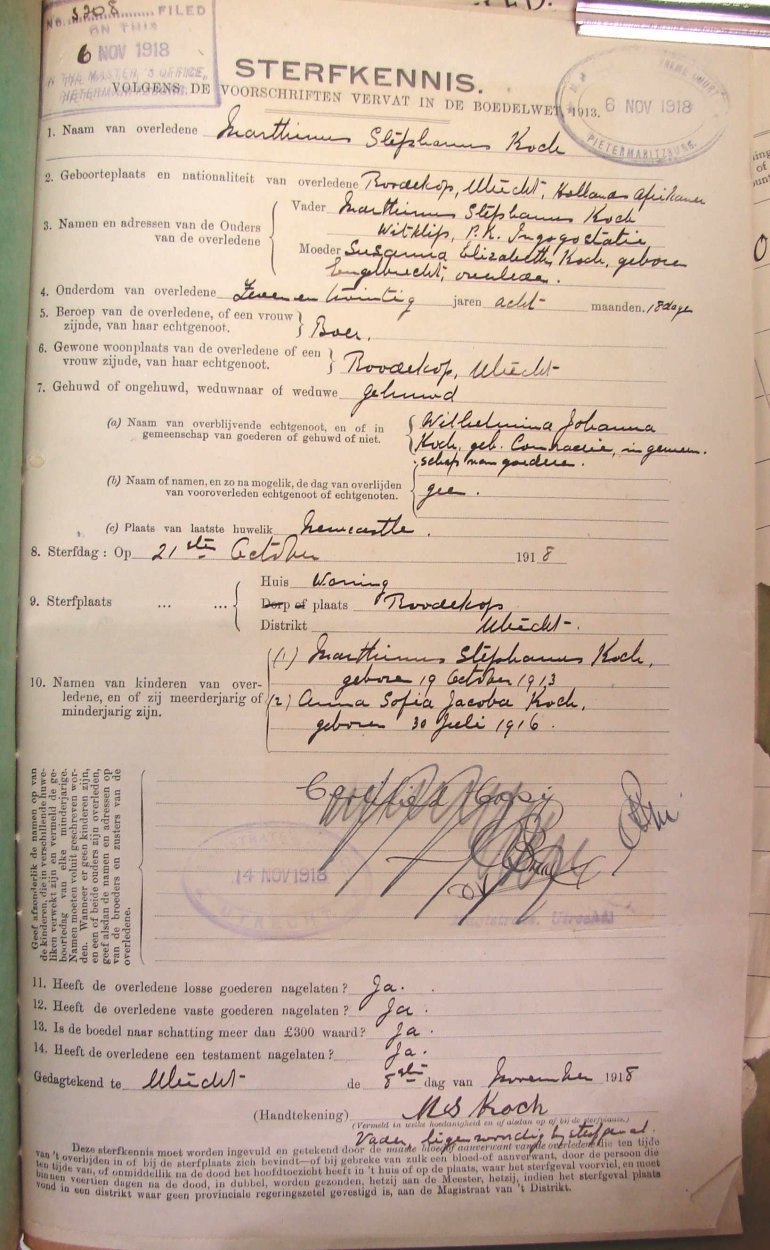 No. 3708 FILED
ON THIS
6 NOV 1918
IN THE MASTER'S OFFICE,
PIETERMARITZBURG.
6 NOV 1918
PIETERMARITZBURG.
STERFKENNIS.
VOLGENS DE VOORSCHRIFTEN VERVAT IN DE BOEDELWET, 1913.
1. Naam van overledene Marthinus Stephanus Koch
2. Geboorteplaats en nationaliteit van overledene Roodekop, Utrecht, Hollands Afrikaner
3. Namen en adressen van de Ouders van de overledene
Vader Marthinus Stephanus Koch
Witklip, P.K. Ingogostatie
Moeder Susanna Elizabeth Koch, geboren
Engelbrecht, overleden.
4. Onderdom van overledene Zeven en twintig jaren acht maanden. 18 dagen
5. Beroep van de overledene, of een vrouw
zijnde, van haar echtgenoot. Boer.
6. Gewone woonplaats van de overledene of een
vrouw zijnde, van haar echtgenoot. Roodekop, Utrecht
7. Gehuwd of ongehuwd, weduwnaar of weduwe gehuwd
(a) Naam van overblijvende echtgenoot, en of in
gemeenschap van goederen of gehuwd of niet.
Wilhelmina Johanna
Koch, geb. Conradie, in gemeen-
schap van goederen.
(b) Naam of namen, en zo na mogelik, de dag van overlijden
van vooroverleden echtgenoot of echtgenoten.
geen.
(c) Plaats van laatste huwelik Newcastle.
8. Sterfdag: Op 21ste October 1918
9. Sterfplaats ... ...
Huis Woning
Dorp of plaats Roodekop
Distrikt Utrecht.
10. Namen van kinderen van over-
ledene, en of zij meerderjarig of
minderjarig zijn.
(1) Marthinus Stephanus Koch,
geboren 19 October 1913
(2) Anna Sofia Jacoba Koch,
geboren 30 Juli 1916.
Geef afzonderlik de namen op van
de kinderen, die in verschillende huwe-
liken verwekt zijn en vermeld de ge-
boortedag van elke minderjarige.
Namen moeten voluit geschreven wor-
den. Wanneer er geen kinderen zijn,
en een of beide ouders zijn overleden,
geef alsdan de namen en adressen op
van de broeders en zusters van de
overledene.
Certified Copy
14 NOV 1918
UTRECHT
Magistrate, Utrecht
11. Heeft de overledene losse goederen nagelaten? Ja.
12. Heeft de overledene vaste goederen nagelaten? Ja.
13. Is de boedel naar schatting meer dan £300 waard? Ja.
14. Heeft de overledene een testament nagelaten? Ja.
Gedagtekend te Utrecht de 8ste dag van November 1918
(Handtekening) MS Koch
(Vermeld in welke hoedanigheid en of alsdan op of bij de sterfplaats.)
Vader, tegenwoordig by sterfgeval.
Deze sterfkennis moet worden ingevuld en getekend door de naaste bloed of aanverwant van de overledene, die ten tijde
van 't overlijden in of bij de sterfplaats zich bevindt—of bij gebreke van zulk een bloed of aanverwant, door de persoon die
ten tijde van, of onmiddellik na de dood het hoofdtoezicht heeft in 't huis of op de plaats, waar het sterfgeval voorviel, en moet
binnen veertien dagen na de dood, in dubbel, worden gezonden, hetzij aan de Meester, hetzij, indien het sterfgeval plaats
vond in een distrikt waar geen provinciale regeringszetel gevestigd is, aan de Magistraat van 't Distrikt.